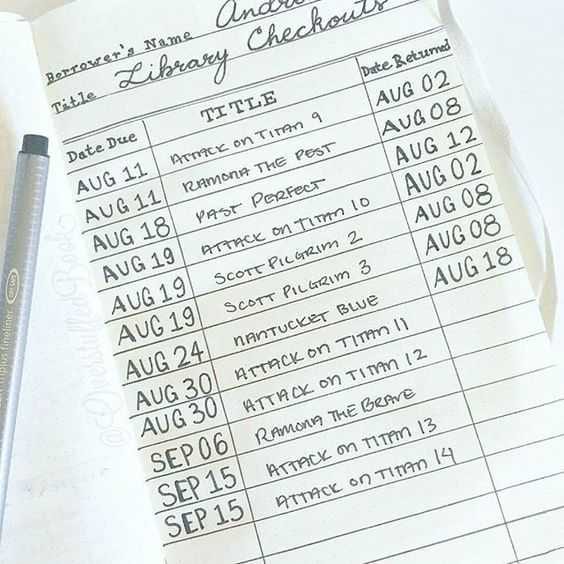 Borrower's Name
Title Library Checkouts
Date Due TITLE Date Returned
AUG 11 ATTACK ON TITAN 9 AUG 02
AUG 11 RAMONA THE PEST AUG 08
AUG 18 PAST PERFECT AUG 12
AUG 19 ATTACK ON TITAN 10 AUG 02
AUG 19 SCOTT PILGRIM 2 AUG 08
AUG 19 SCOTT PILGRIM 3 AUG 08
AUG 24 NANTUCKET BLUE AUG 18
AUG 30 ATTACK ON TITAN 11
AUG 30 ATTACK ON TITAN 12
SEP 06 RAMONA THE BRAVE
SEP 15 ATTACK ON TITAN 13
SEP 15 ATTACK ON TITAN 14
plus fineliner